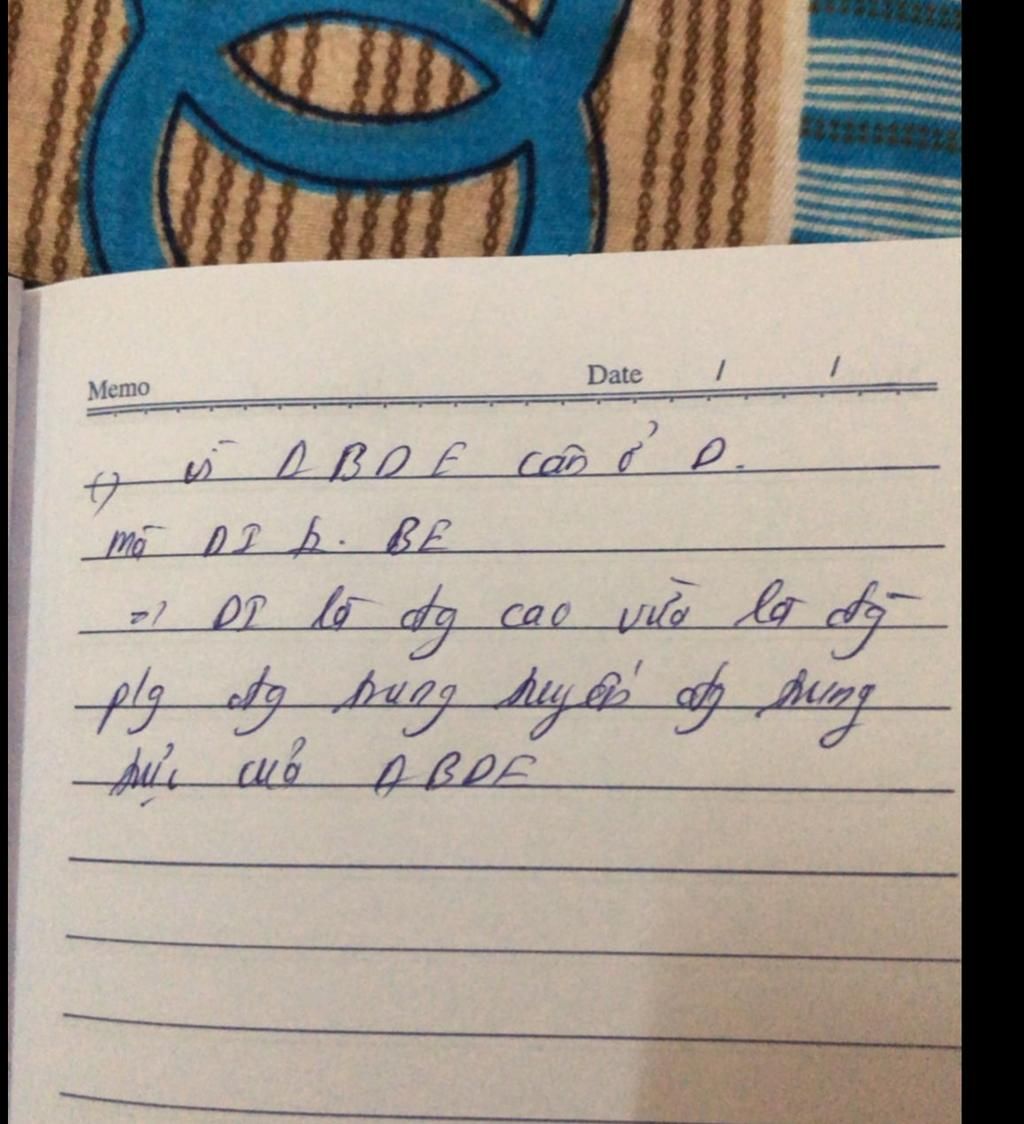 Memo Date / /
c) vì Δ BDE cân ở D.
mà DI ⊥. BE
=> DI là đg cao vừa là đg
p/g đg trung tuyến đg trung
trực của Δ BDE